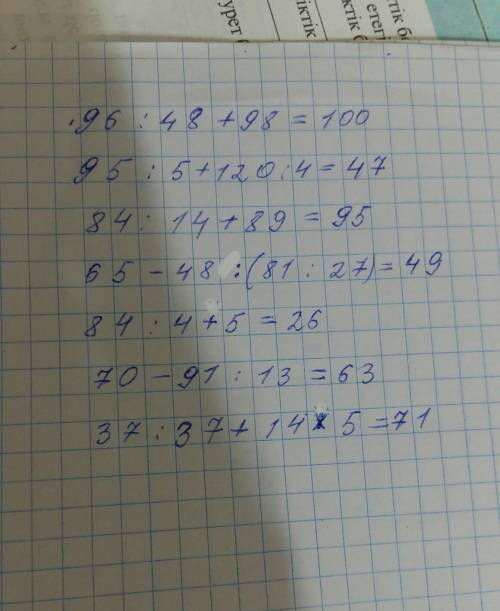 турет
іктік
етегі
стік бө
ктік б
96 : 48 + 98 = 100
95 : 5 + 120 : 4 = 47
84 : 14 + 89 = 95
65 - 48 : (81 : 27) = 49
84 : 4 + 5 = 26
70 - 91 : 13 = 63
37 : 37 + 14 x 5 = 71